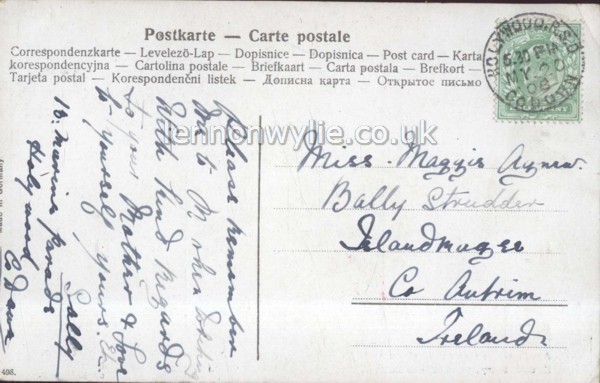 Postkarte — Carte postale
Correspondenzkarte — Levelező-Lap — Dopisnice — Dopisnica — Post card — Karta
korespondencyjna — Cartolina postale — Briefkaart — Carta postala — Brefkort —
Tarjeta postal — Korespondenční listek — Дописна карта — Открытое письмо
HOLYWOOD. R.S.O.
5.30 PM
MY 20
06
CO. DOWN
lennonwylie.co.uk
Please remember
me to Mother
With kind regards
to your Mother & love
to yourself yours
Sally
Marine Parade
Holywood
Co Down
Miss. Maggie Agnew.
Bally Strudder
Islandmagee
Co Antrim
Ireland.
Made in Germany
498.